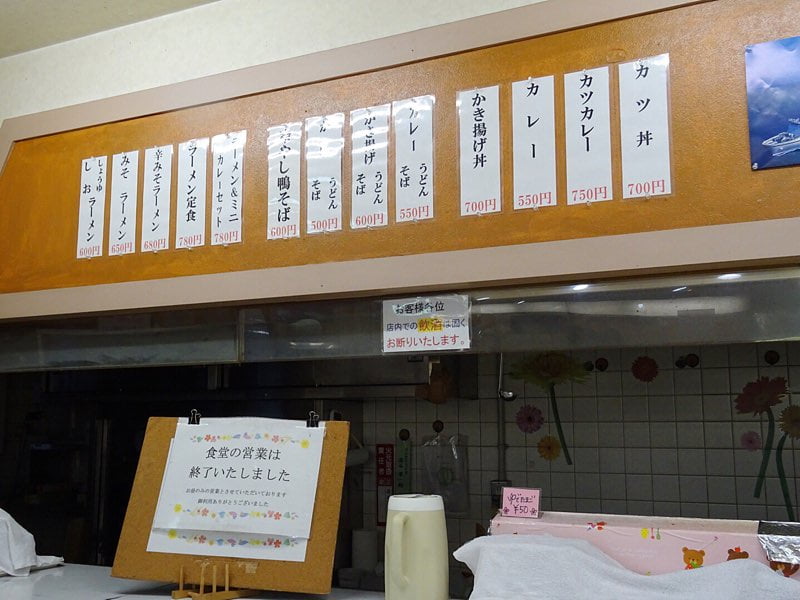 カツ丼
700円
カツカレー
750円
カレー
550円
かき揚げ丼
700円
カレー うどん
そば
550円
かき揚げ うどん
そば
600円
うどん
そば
500円
冷やし鴨そば
600円
ラーメン&ミニ
カレーセット
780円
ラーメン定食
780円
辛みそラーメン
680円
みそ ラーメン
650円
しょうゆ
しお ラーメン
600円
お客様各位
店内での飲酒は固く
お断りいたします。
食堂の営業は
終了いたしました
お昼のみの営業とさせていただいております
御利用ありがとうございました
火元取締
責任者
ゆでたまご
¥50